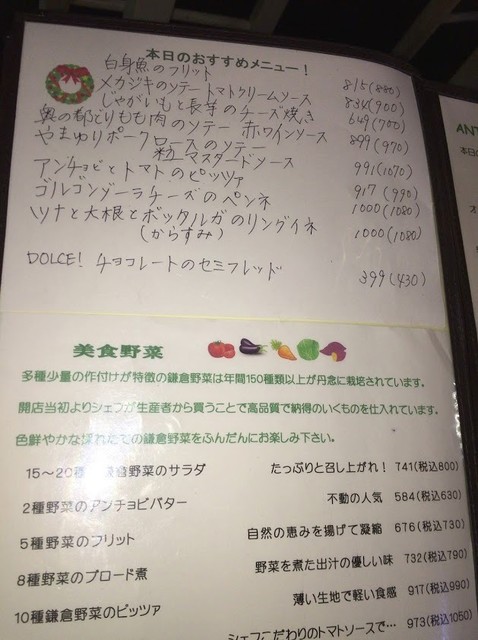 本日のおすすめメニュー！
白身魚のフリット 815(880)
メカジキのソテー トマトクリームソース 834(900)
じゃがいもと長芋のチーズ焼き 649(700)
奥の都どりもも肉のソテー 赤ワインソース 899(970)
やまゆりポークロースのソテー
粒マスタードソース 991(1070)
アンチョビとトマトのピッツァ 917(990)
ゴルゴンゾーラチーズのペンネ 1000(1080)
ツナと大根とボッタルガのリングイネ 1000(1080)
(からすみ)
DOLCE! チョコレートのセミフレッド 399(430)
美食野菜
多種少量の作付けが特徴の鎌倉野菜は年間150種類以上が丹念に栽培されています。
開店当初よりシェフが生産者から買うことで高品質で納得のいくものを仕入れています。
色鮮やかな採れたての鎌倉野菜をふんだんにお楽しみ下さい。
15～20種 鎌倉野菜のサラダ たっぷりと召し上がれ！ 741(税込800)
2種野菜のアンチョビバター 不動の人気 584(税込630)
5種野菜のフリット 自然の恵みを揚げて凝縮 676(税込730)
8種野菜のブロード煮 野菜を煮た出汁の優しい味 732(税込790)
10種鎌倉野菜のピッツァ 薄い生地で軽い食感 917(税込990)
シェフこだわりのトマトソースで… 973(税込1050)
ANT
本日